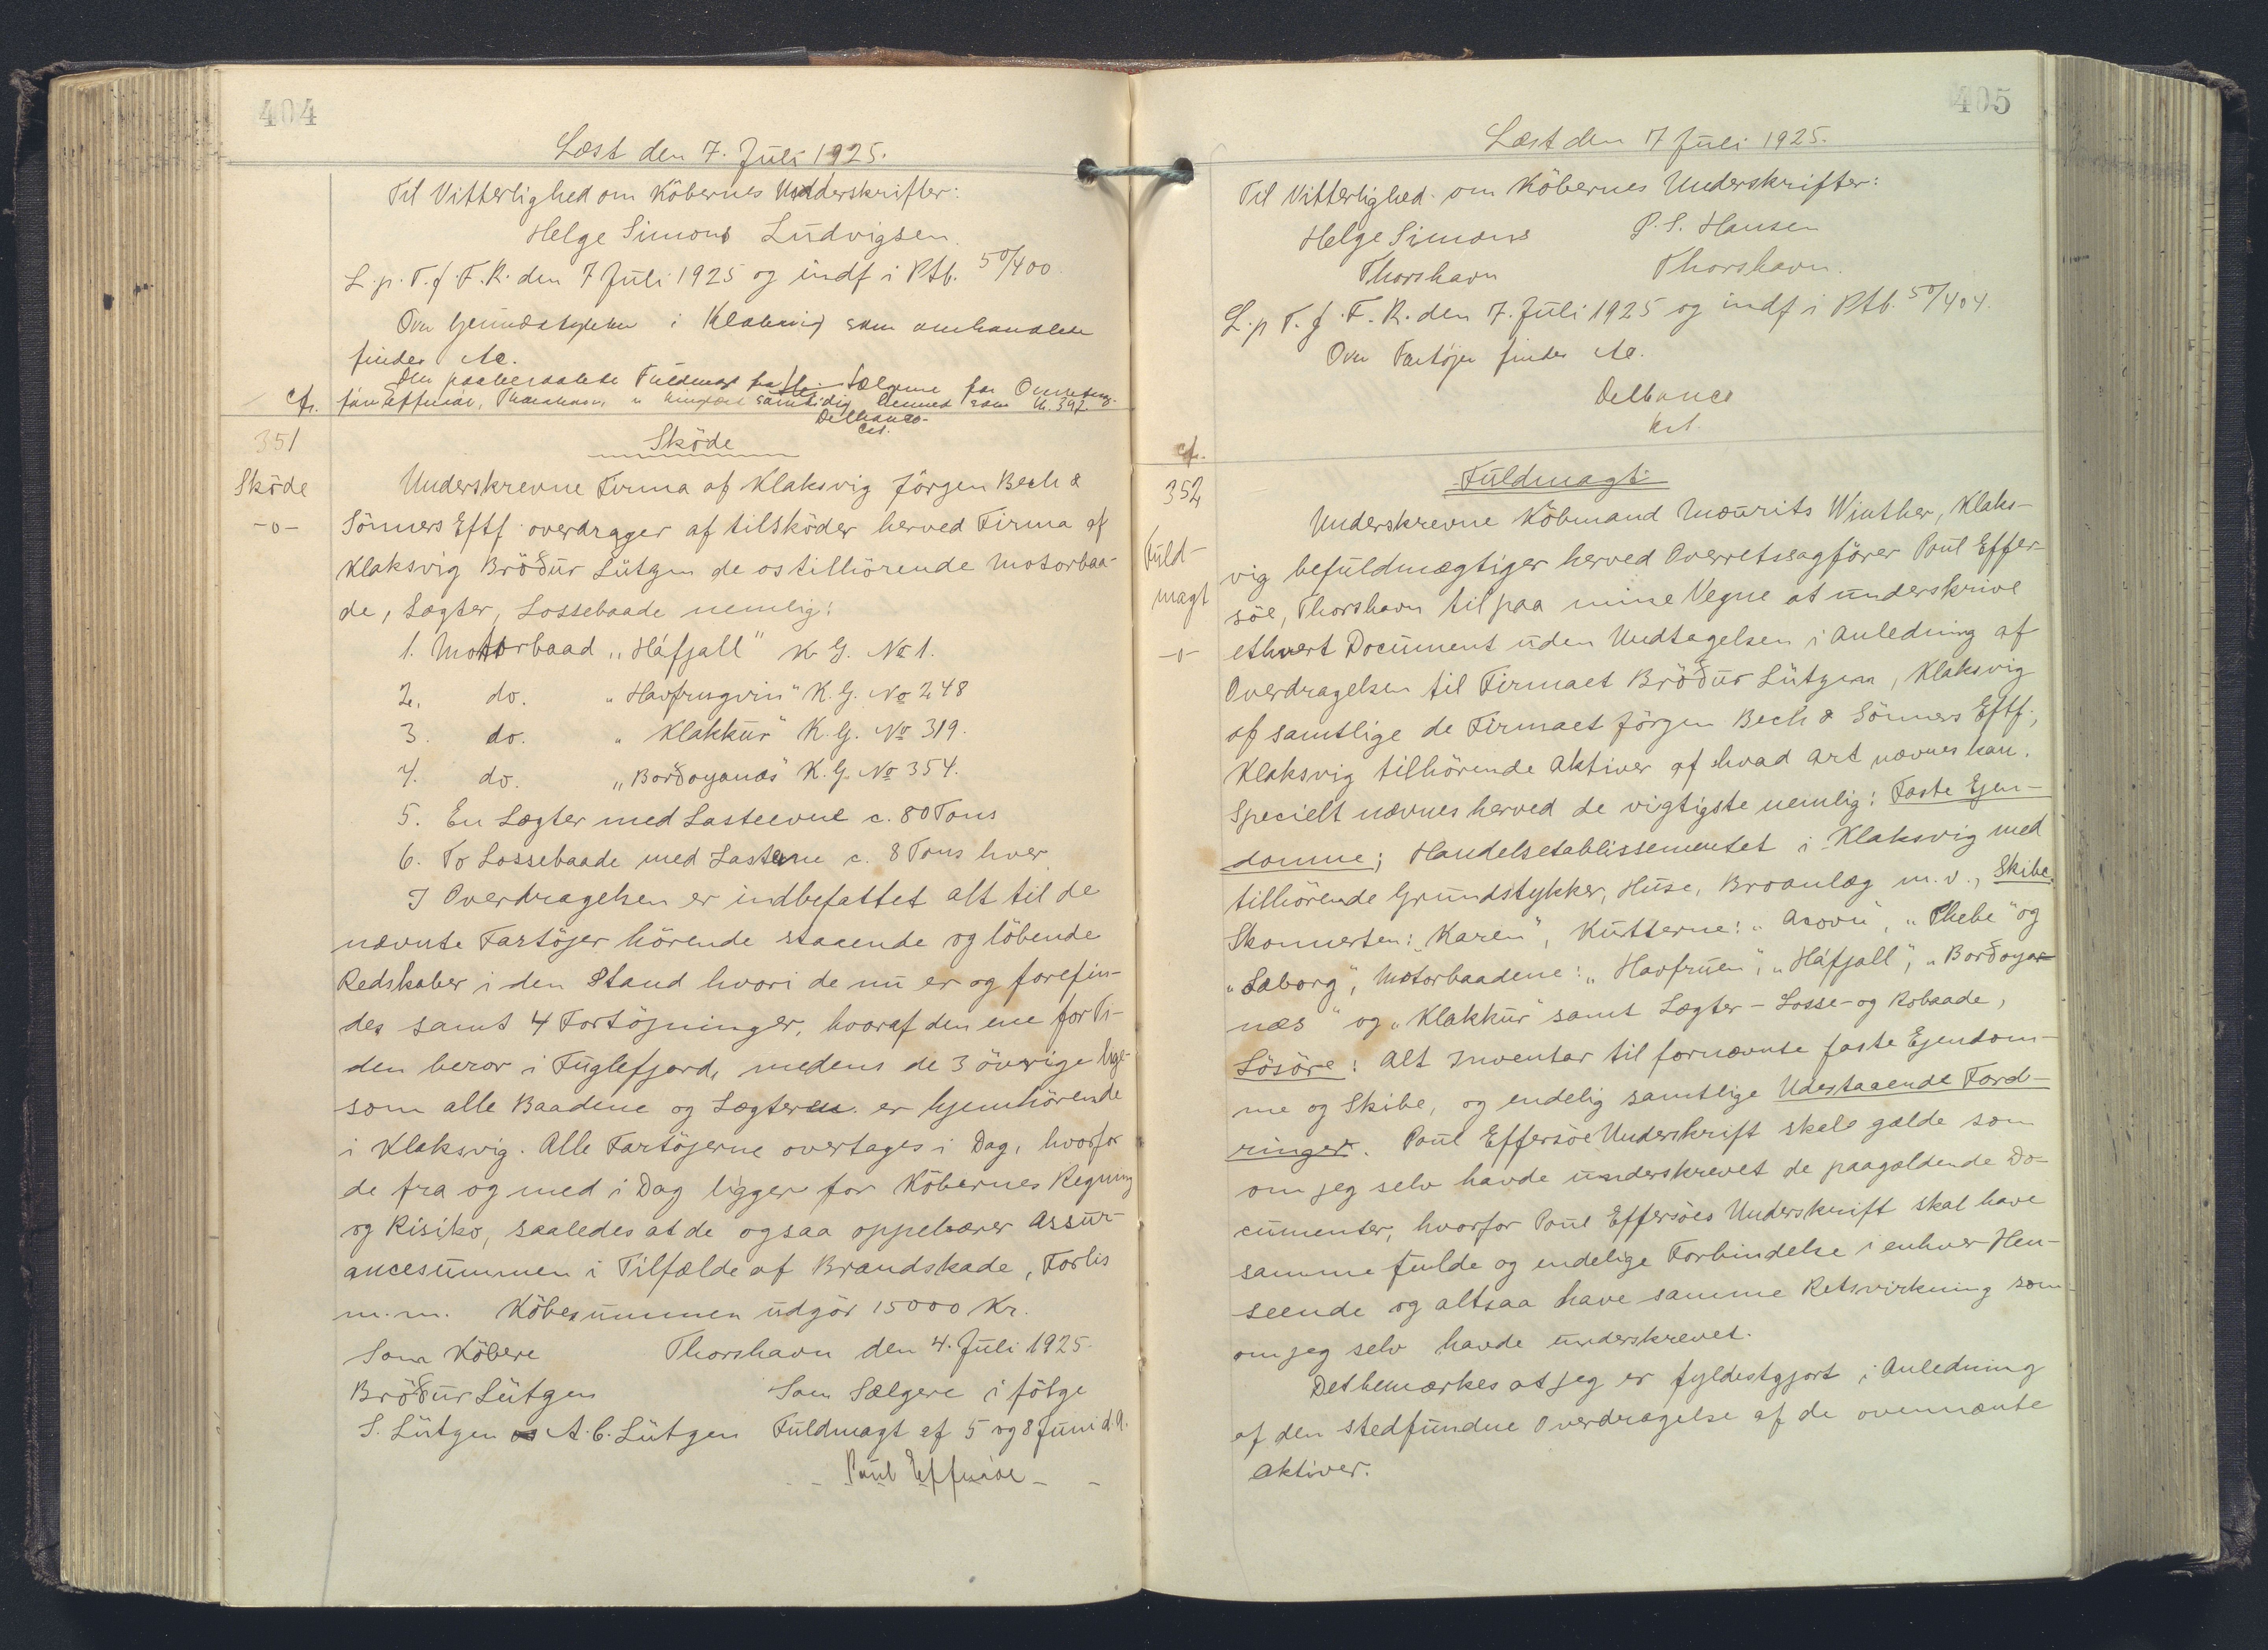 404
Læst den 7. Juli 1925.
Til Vitterlighed om Köbernes Underskrifter:
Helge Simons Ludvigsen.
L. p. T. f. F. R. den 7 Juli 1925 og indf i Ptb. 50/400
Over Grundstykker i Klaksvig som omhandlede
findes Ae.
Den paaberaabte Fuldmagt fra Sælgerne for Overretssag-
cfr. förer Effersöe, Thorshavn, samtidig som N. 392.
Delbanco
cst.
351
Sköde
Sköde
-o-
Underskrevne Firma af Klaksvig Jörgen Bech &
Sönners Eftf. overdrager af tilsköder herved Firma af
Klaksvig Bröður Lützen de os tilhörende Motorbaa-
de, Lægter, Lossebaade nemlig:
1. Motorbaad „Háfjall" K G. No 1.
2. do. „Havfrugvin" K. G. No 248
3. do. „Klakkur" K. G. No 319.
4. do. „Borðoyanæs" K. G. No 354.
5. En Lægter med Lasteevne c. 80 Tons
6. To Lossebaade med Lasteevne c. 8 Tons hver
I Overdragelsen er indbefattet alt til de
nævnte Fartöjer hörende staaende og löbende
Redskaber i den Stand hvori de nu er og forefin-
des samt 4 Fortöjninger, hvoraf den ene for Ti-
den beror i Fuglefjord, medens de 3 övrige lige-
som alle Baadene og Lægteren er hjemhörende
i Klaksvig. Alle Fartöjerne overtages i Dag, hvorfor
de fra og med i Dag ligger for Köbernes Regning
og Risiko, saaledes at de ogsaa oppebærer Assur-
ancesummen i Tilfælde af Brandskade, Forlis
m.m. Köbesummen udgör 15000 Kr.
Som Köbere Thorshavn den 4. Juli 1925.
Bröður Lützen Som Sælgere i fölge
S. Lützen A. C. Lützen Fuldmagt af 5 og 8 Juni d.A.
Poul Effersöe
405
Læst den 7 Juli 1925.
Til Vitterlighed om Köbernes Underskrifter:
Helge Simons P. S. Hansen
Thorshavn Thorshavn.
L. p. T. f. F. R. den 7. Juli 1925 og indf i Ptb. 50/404.
Over Fartöjer findes Ae.
Delbanco
cst.
cf.
352
Fuldmagt
Fuld-
magt
-o-
Underskrevne Köbmand Mourits Winther, Klaks-
vig befuldmægtiger herved Overretssagförer Poul Effer-
söe, Thorshavn til paa mine Vegne at underskrive
ethvert Document uden Undtagelsen i Anledning af
Overdragelsen til Firmaet Bröður Lützen, Klaksvig
af samtlige de Firmaet Jörgen Bech & Sönners Eftf.,
Klaksvig tilhörende Aktiver af hvad Art nævnes kan.
Specielt nævnes herved de vigtigste nemlig: Faste Ejen-
domme; Handelsetablissementet i Klaksvig med
tilhörende Grundstykker, Huse, Broanlæg m.v., Skibe:
Skonnerten: „Karen", Kutterne: „Acorn", „Phebe" og
„Saborg", Motorbaadene: „Havfruen", „Háfjall", „Borðoya-
næs" og „Klakkur" samt Lægter- Losse- og Robaade,
Lösöre: Alt Inventar til fornævnte faste Ejendom-
me og Skibe, og endelig samtlige Udestaaende Ford-
ringer. Poul Effersöe Underskrift skal gælde som
om jeg selv havde underskrevet de paagældende Do-
cumenter, hvorfor Poul Effersöes Underskrift skal have
samme fulde og endelige Forbindelse i enhver Hen-
seende og altsaa have samme Retsvirkning som
om jeg selv havde underskrevet.
Det bemærkes at jeg er fyldestgjort i Anledning
af den stedfundne Overdragelse af de ovennævnte
Aktiver.